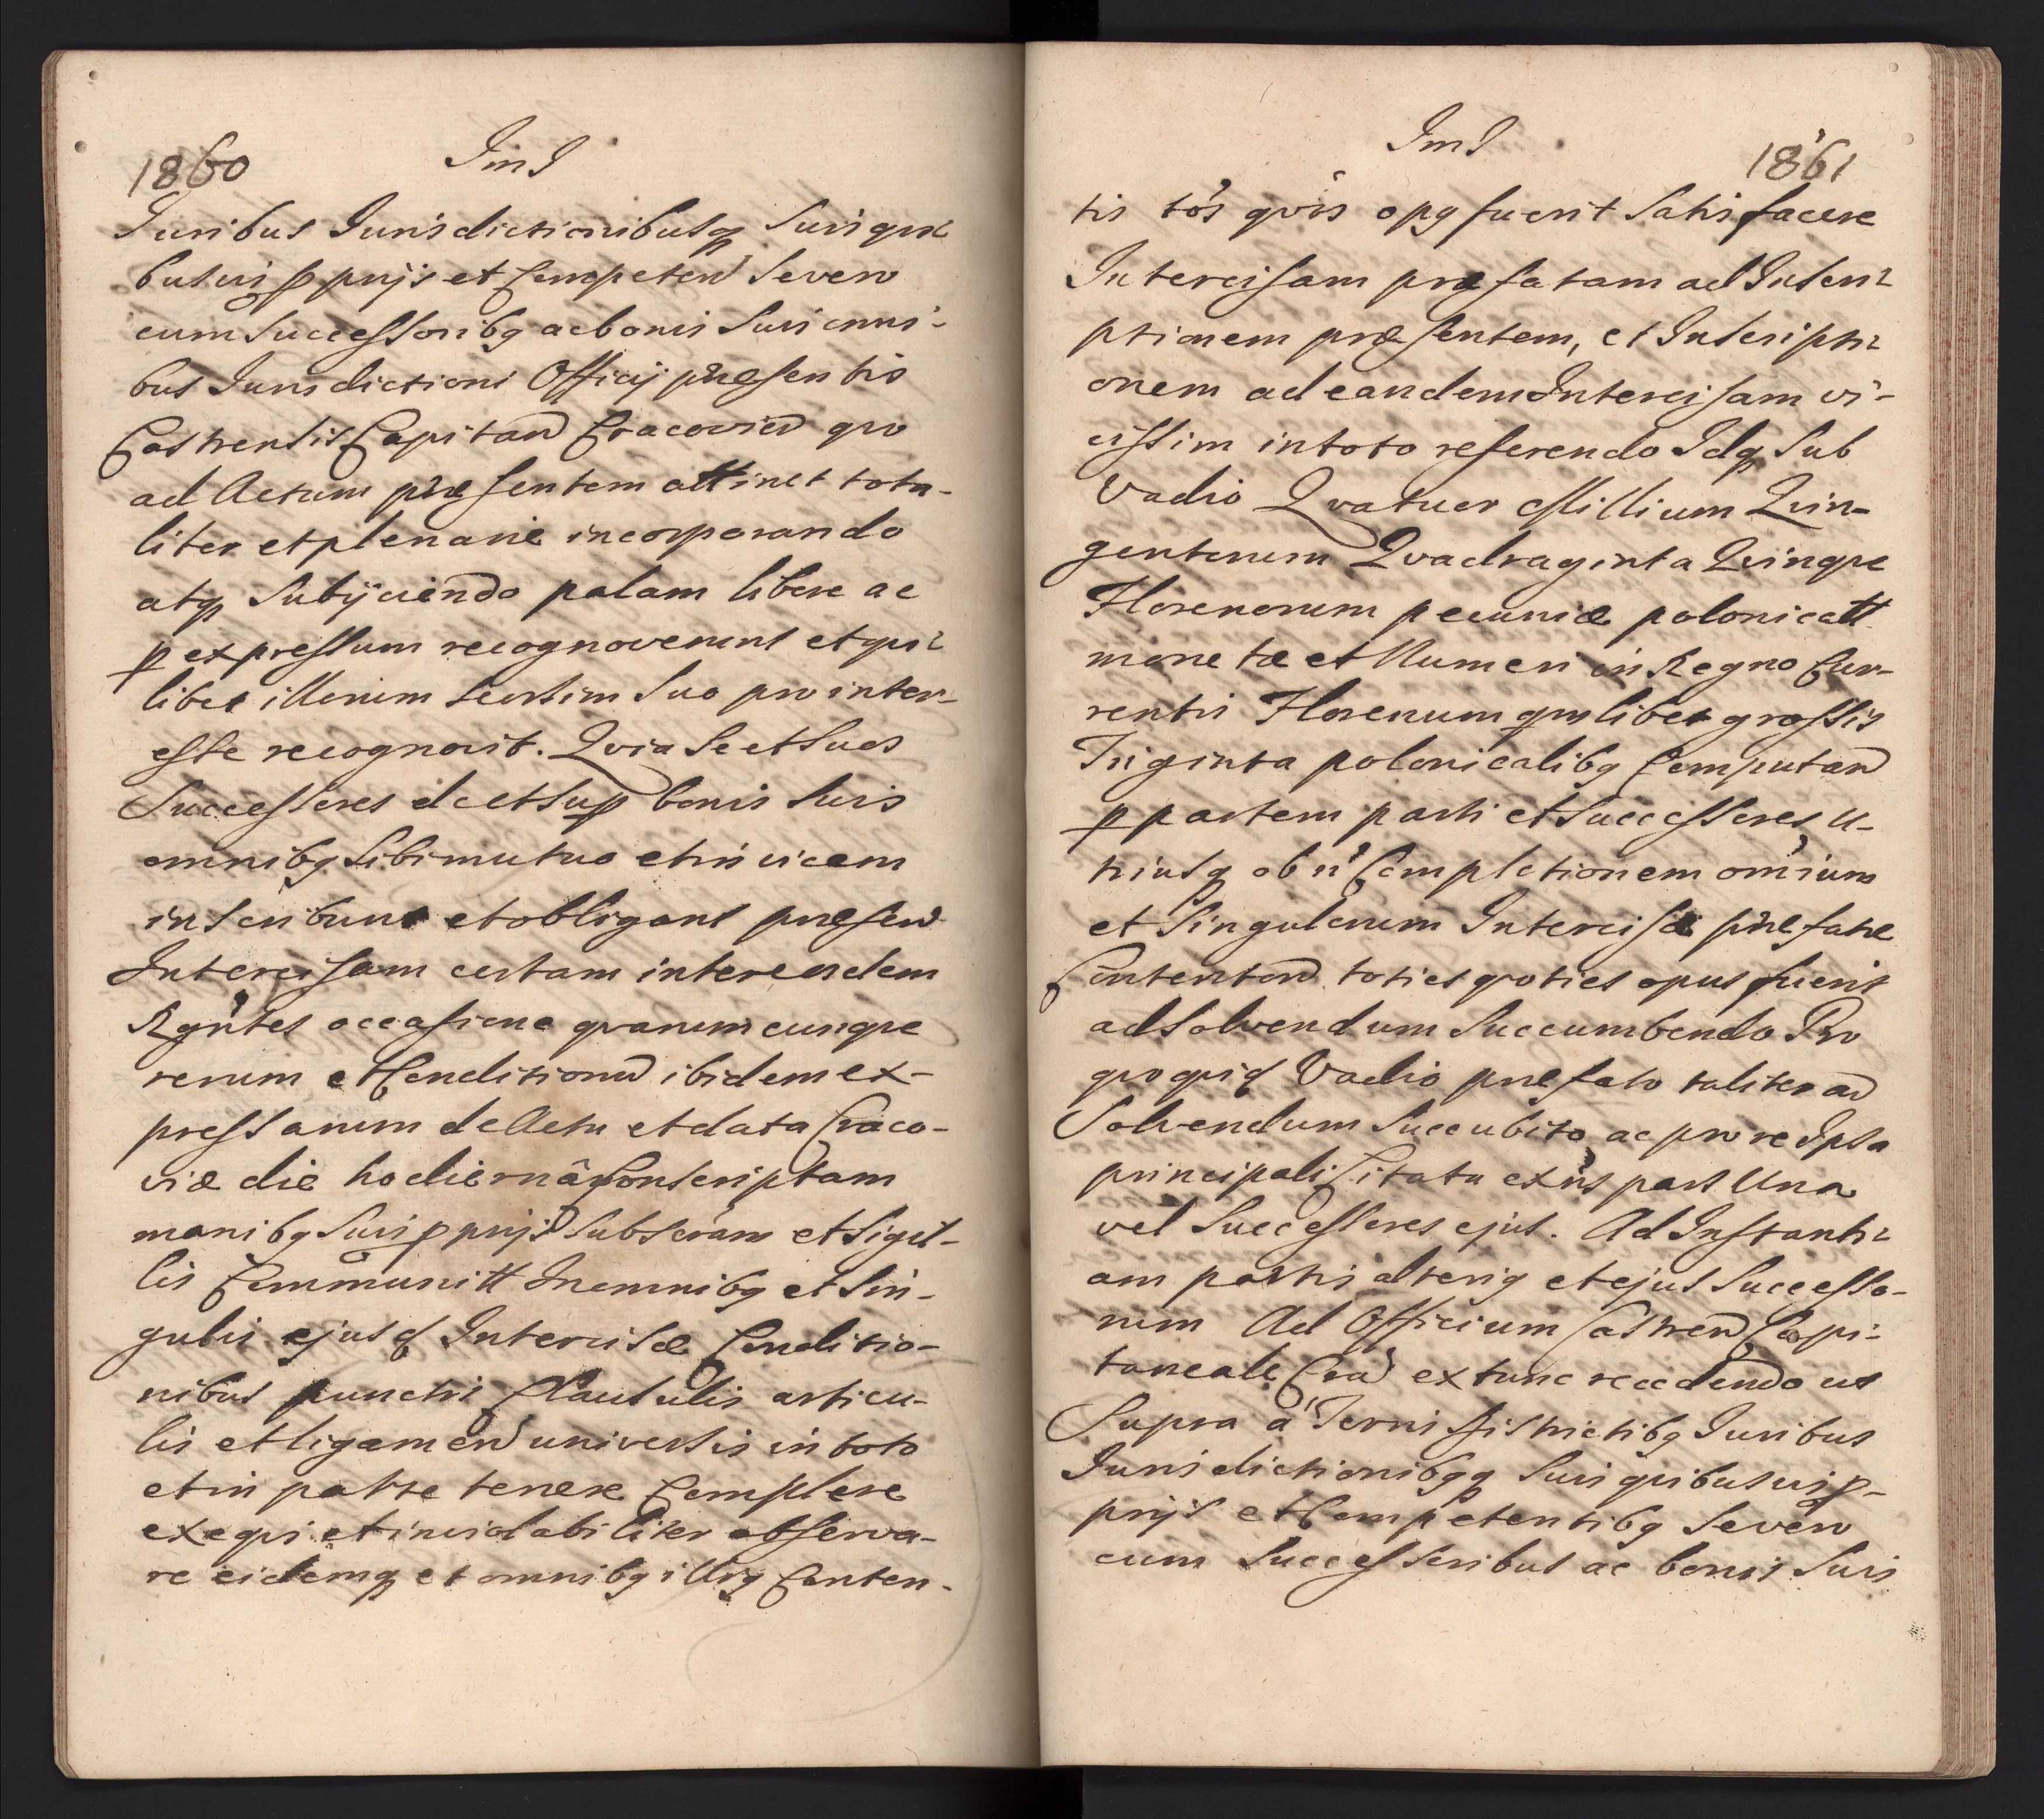 1860
Ima
Juribus Jurisdictionibusq suisqui
busuis pprijs et Competen seven
cum successoribq acbonis suis omni-
bus Jurisdictioni Officij præsentis
Castrensis Capitan Cracovien quo
ad Actum præsentem attinet tota-
liter etplenarie incorporando
atq subijciendo palam libere ac
p expressum recognoverunt etqui-
libet illorum seorsim suo pro inter-
esse recognovit. Qvia se etsuos
Successores deetsup bonis suis
omnibq sibimutuo etinvicem
inscribunt etobligant præsen
Intercisam certam intereosdem
Rgñtes occasione qvarumcunque
rerum etConditionu ibidemex-
pressarum deActu etdata Craco-
viæ die hodiernâ Conscriptam
manibq suis pprijs subscram etsigil-
lis Communitt Inomnibq etsin-
gulis ejusd Intercisæ Conditio-
nibus punctis Clausulis articu-
lis etligamen universis intoto
etin parte tenere Complere
exequi etinviolabiliter observa-
re eidemq etomnibq illiq Conten-
Ima
1861
tis tos qvos opq fuerit satisfacere
Intercisam præfatam adInscri-
ptionem præsentem, et Inscripti-
onem adeandemIntercisam vi-
cissim intoto referendo Idq sub
Vadio Qvatuor Millium Qvin-
gentorum Qvadraginta Qvinque
Florenorum pecuniæ polonicatt
monetæ et Numeri in Regno Cur-
rentis Florenum qmlibet grossis
Triginta polonicalibq Computan
p partem parti etsuccessores u-
triusq ob ñ Completionem omium
et singulorum Intercisæ præfatæ
Contentor toties qvoties opus fuerit
adsolvendum succumbendo Pro
qvoqvid Vadio præfato taliter ad
Solvendum succubito ac pro reIpsa
principali Citata exñs pars Una
vel successores ejus. Ad Instanti-
am partis alteriq etejus successo-
rum Ad Officium Castren Capi-
taneale Cra extunc recedendo ut
Supra à Terris Districtibq Juribus
Jurisdictionibqq suis quibusuis p-
prijs etCompetentibq seven
cum successoribus ac bonis suis